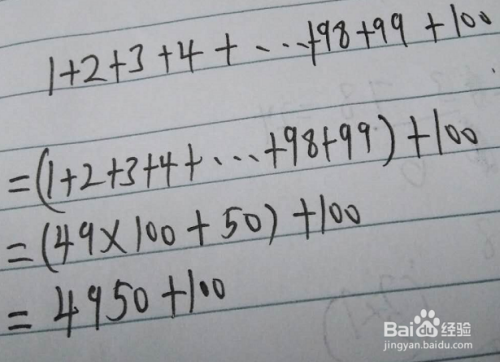 1+2+3+4+…+98+99+100
=(1+2+3+4+…+98+99)+100
=(49×100+50)+100
=4950+100
Baidu经验
jingyan.baidu.com